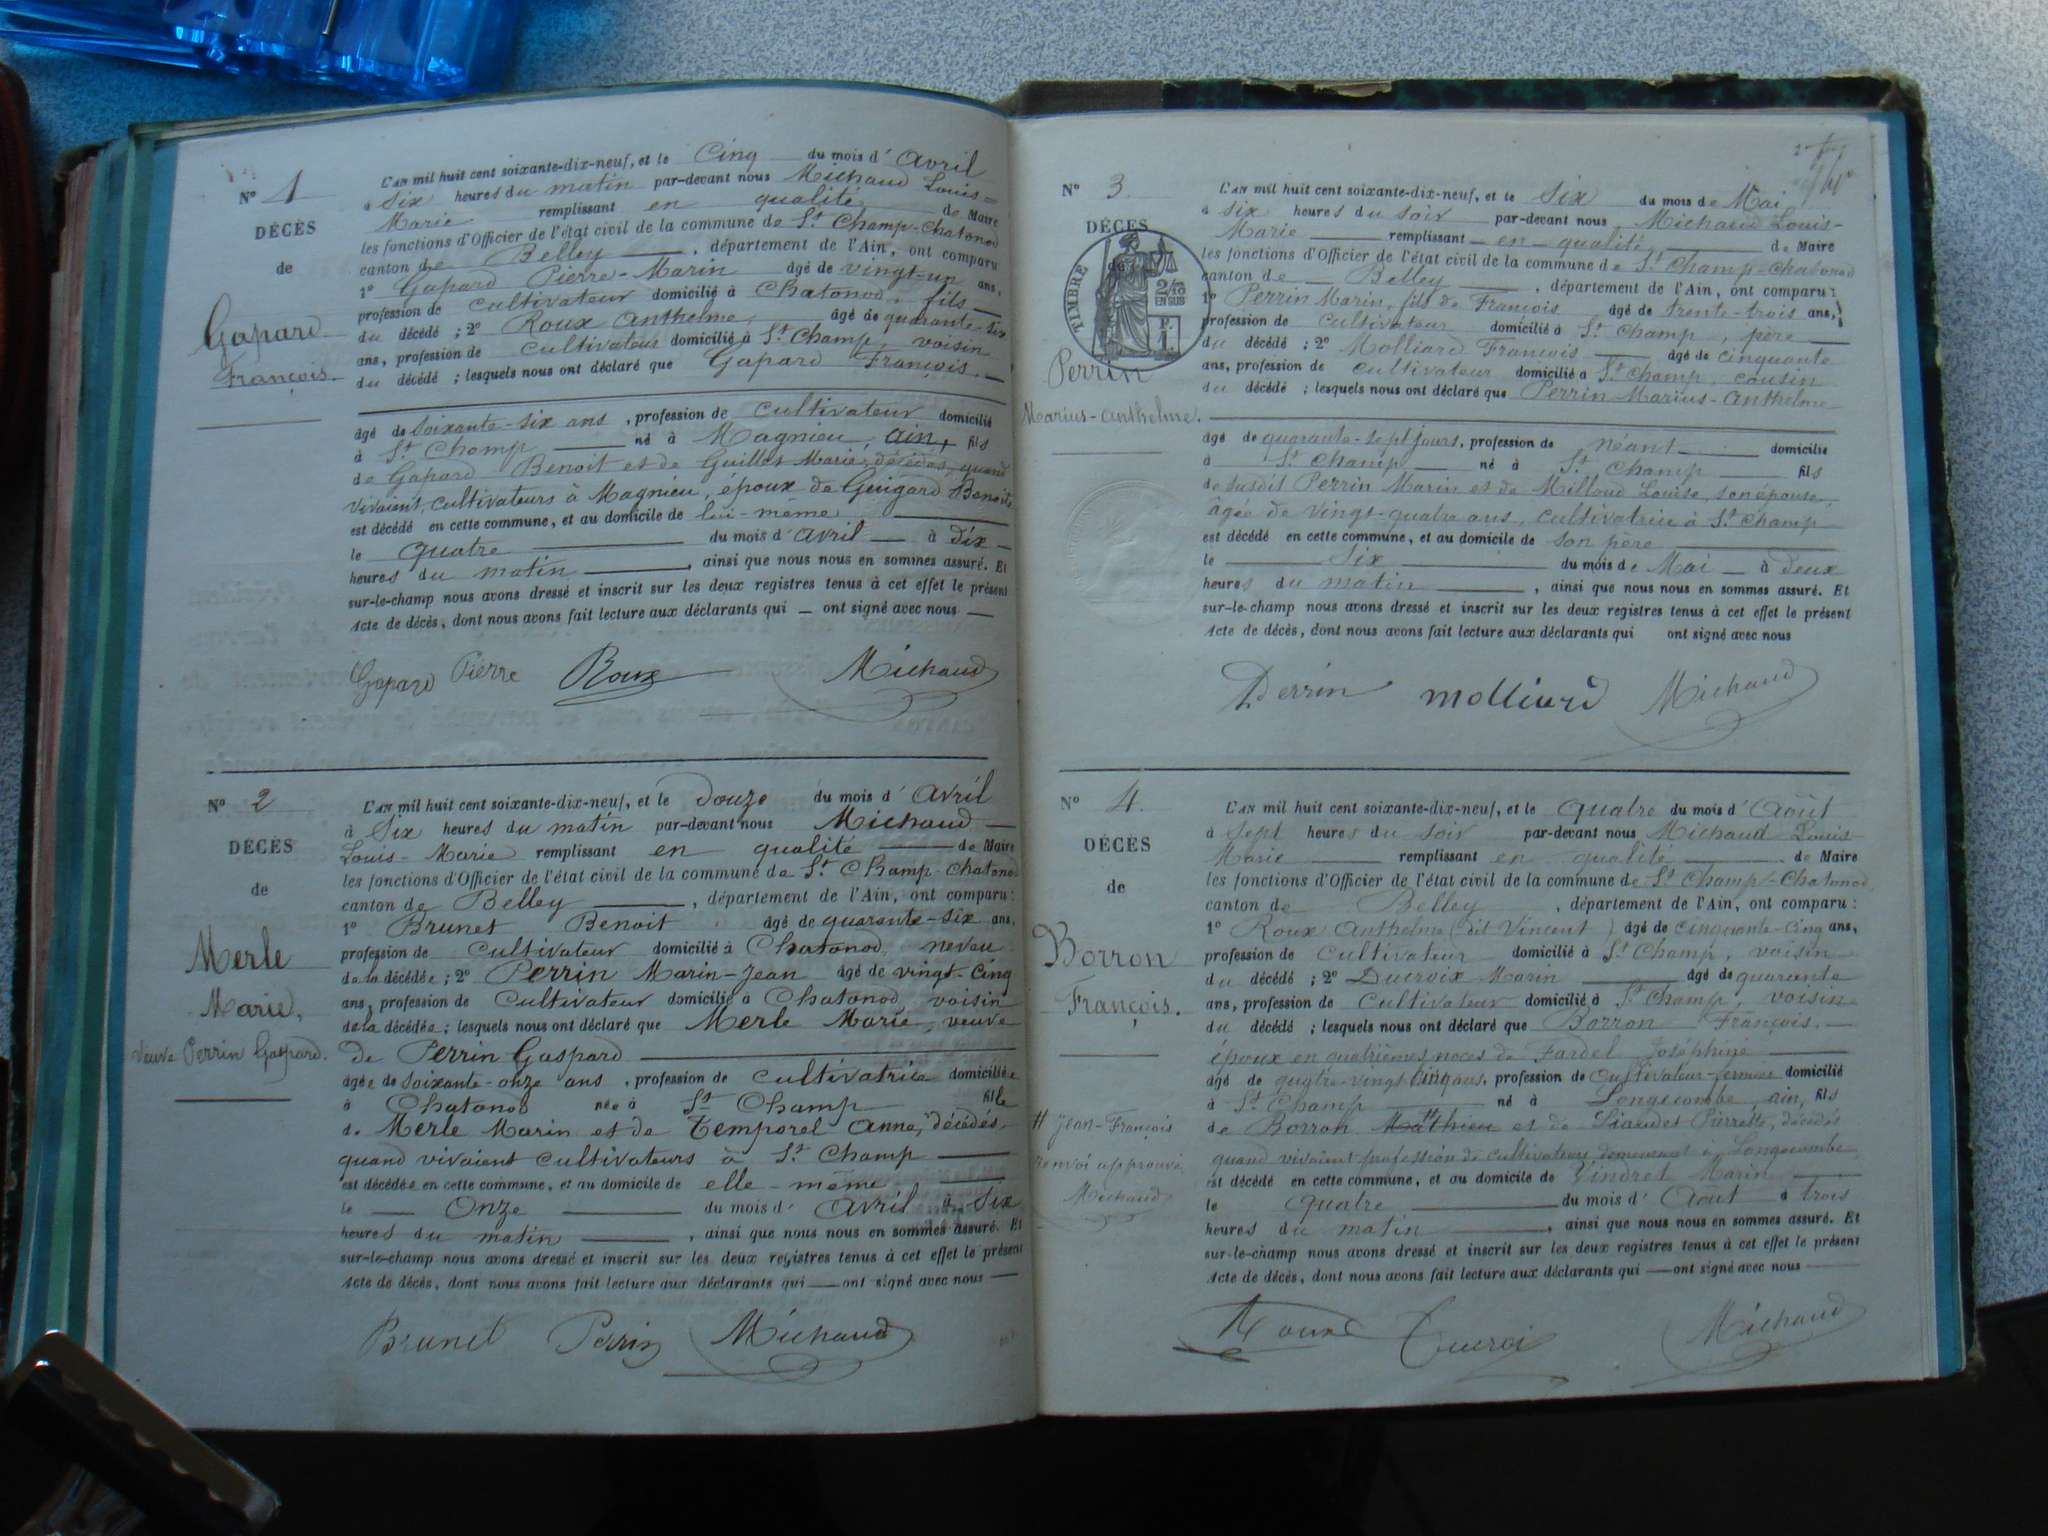 N° 1
DÉCÈS
de
Gapard
François.
L'AN mil huit cent soixante-dix-neuf, et le Cinq du mois d' Avril
à Six heures du matin par-devant nous Michaud Louis=
Marie remplissant en qualité de Maire
les fonctions d'Officier de l'état civil de la commune de St Champ-Chatonod
canton de Belley, département de l'Ain, ont comparu
1° Gapard Pierre-Marin âgé de vingt-un ans,
profession de cultivateur domicilié à Chatonod, fils
du décédé ; 2° Roux Anthelme, âgé de quarante-six
ans, profession de cultivateur domicilié à St Champ, voisin
du décédé ; lesquels nous ont déclaré que Gapard François.
âgé de soixante-six ans, profession de cultivateur domicilié
à St Champ né à Magnieu, ain, fils
de Gapard Benoit et de Guillot Marie, décédés, quand
vivaient, cultivateurs à Magnieu, époux de Guigard Benoite
est décédé en cette commune, et au domicile de lui-même
le quatre du mois d' avril à dix
heures du matin, ainsi que nous nous en sommes assuré. Et
sur-le-champ nous avons dressé et inscrit sur les deux registres tenus à cet effet le présent
Acte de décès, dont nous avons fait lecture aux déclarants qui ont signé avec nous
Gapard Pierre Roux Michaud
N° 2
DÉCÈS
de
Merle
Marie,
veuve Perrin Gaspard.
L'AN mil huit cent soixante-dix-neuf, et le douze du mois d' Avril
à Six heures du matin par-devant nous Michaud
Louis-Marie remplissant en qualité de Maire
les fonctions d'Officier de l'état civil de la commune de St Champ-Chatonod
canton de Belley, département de l'Ain, ont comparu :
1° Brunet Benoit âgé de quarante-six ans,
profession de cultivateur domicilié à Chatonod, neveu
de la décédée ; 2° Perrin Marin-Jean âgé de vingt-cinq
ans, profession de cultivateur domicilié à Chatonod, voisin
de la décédée ; lesquels nous ont déclaré que Merle Marie, veuve
de Perrin Gaspard
âgée de soixante-onze ans, profession de cultivatrice domiciliée
à Chatonod née à St Champ fille
de Merle Marin et de Temporel Anne, décédés
quand vivaient cultivateurs à St Champ
est décédée en cette commune, et au domicile de elle-même
le Onze du mois d' avril à Six
heures du matin, ainsi que nous nous en sommes assuré. Et
sur-le-champ nous avons dressé et inscrit sur les deux registres tenus à cet effet le présent
Acte de décès, dont nous avons fait lecture aux déclarants qui ont signé avec nous
Brunet Perrin Michaud
N° 3.
DÉCÈS
de
TIMBRE
2/10
EN SUS
F.
1.
Perrin
Marius-Anthelme.
L'AN mil huit cent soixante-dix-neuf, et le Six du mois de Mai
à six heures du soir par-devant nous Michaud Louis-
Marie remplissant en qualité de Maire
les fonctions d'Officier de l'état civil de la commune de St Champ-Chatonod
canton de Belley, département de l'Ain, ont comparu :
1° Perrin Marin, fils de François âgé de trente-trois ans,
profession de cultivateur domicilié à St Champ, père
du décédé ; 2° Molliard François âgé de cinquante
ans, profession de cultivateur domicilié à St Champ, cousin
du décédé ; lesquels nous ont déclaré que Perrin Marius-Anthelme
âgé de quarante-sept jours, profession de néant domicilié
à St Champ né à St Champ fils
de susdit Perrin Marin et de Milloud Louise, son épouse,
âgée de vingt-quatre ans, cultivatrice à St Champ
est décédé en cette commune, et au domicile de son père
le Six du mois de Mai à deux
heures du matin, ainsi que nous nous en sommes assuré. Et
sur-le-champ nous avons dressé et inscrit sur les deux registres tenus à cet effet le présent
Acte de décès, dont nous avons fait lecture aux déclarants qui ont signé avec nous
Perrin Molliard Michaud
N° 4.
DÉCÈS
de
Borron
François.
# Jean-François
renvoi approuvé,
Michaud
L'AN mil huit cent soixante-dix-neuf, et le quatre du mois d' Août
à Sept heures du soir par-devant nous Michaud Louis-
Marie remplissant en qualité de Maire
les fonctions d'Officier de l'état civil de la commune de St Champ-Chatonod
canton de Belley, département de l'Ain, ont comparu :
1° Roux Anthelme (dit Vincent) âgé de cinquante-cinq ans,
profession de cultivateur domicilié à St Champ, voisin
du décédé ; 2° Ducroix Marin âgé de quarante
ans, profession de cultivateur domicilié à St Champ, voisin
du décédé ; lesquels nous ont déclaré que Borron François.
époux en quatrièmes noces de Fardel Joséphine
âgé de quatre-vingt cinq ans, profession de cultivateur-fermier domicilié
à St Champ né à Longecombe ain, fils
de Borron Mathieu et de Pierrette, décédés
quand vivaient profession de cultivateurs demeurant à Longecombe
est décédé en cette commune, et au domicile de Vindret Marin
le quatre du mois d' Août à trois
heures du matin, ainsi que nous nous en sommes assuré. Et
sur-le-champ nous avons dressé et inscrit sur les deux registres tenus à cet effet le présent
Acte de décès, dont nous avons fait lecture aux déclarants qui ont signé avec nous
Roux Michaud